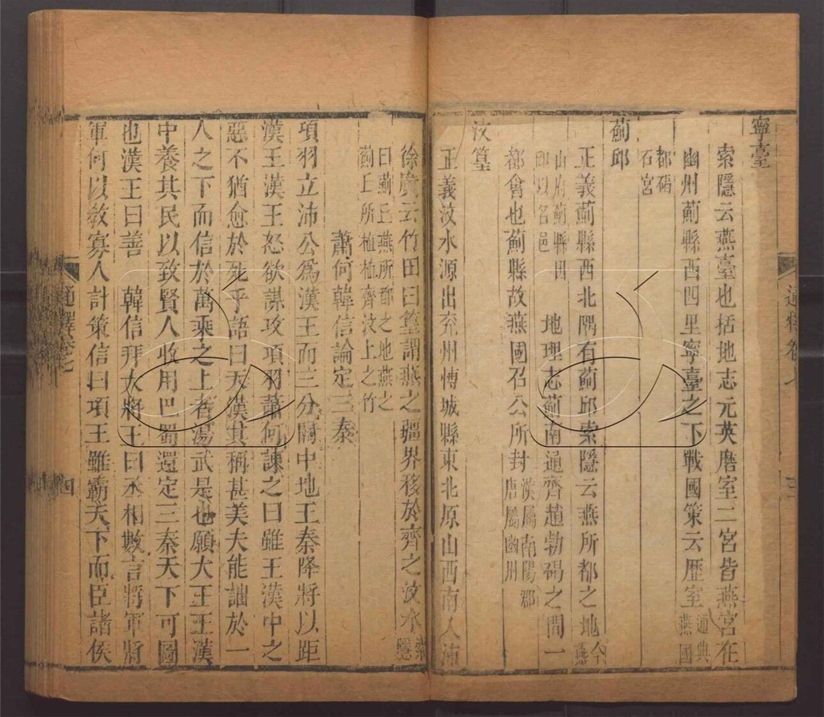 寧臺
索隱云燕臺也括地志元英磨室二宮皆燕宮在
幽州薊縣西四里寧臺之下戰國策云歷室通典燕國
都碣石宮
薊邱
正義薊縣西北隅有薊邱索隱云燕所都之地今燕
山府薊縣因邱以名邑 地理志薊南通齊趙勃碣之間一
都會也薊縣故燕國召公所封漢屬南陽郡唐屬幽州
汶篁
正義汶水源出兗州博城縣東北原山西南入沛
徐廣云竹田曰篁謂燕之疆界移於齊之汶水索隱
曰薊丘燕所都之地燕之薊丘所植植齊汶上之竹
蕭何韓信論定三秦
項羽立沛公為漢王而三分關中地王秦降將以距
漢王漢王怒欲謀攻項羽蕭何諫之曰雖王漢中之
惡不猶愈於死乎語曰天漢其稱甚美夫能詘於一
人之下而信於萬乘之上者湯武是也願大王王漢
中養其民以致賢人收用巴蜀還定三秦天下可圖
也漢王曰善 韓信拜大將王曰丞相數言將軍將
軍何以教寡人計策信曰項王雖霸天下而臣諸侯
通釋卷七
四